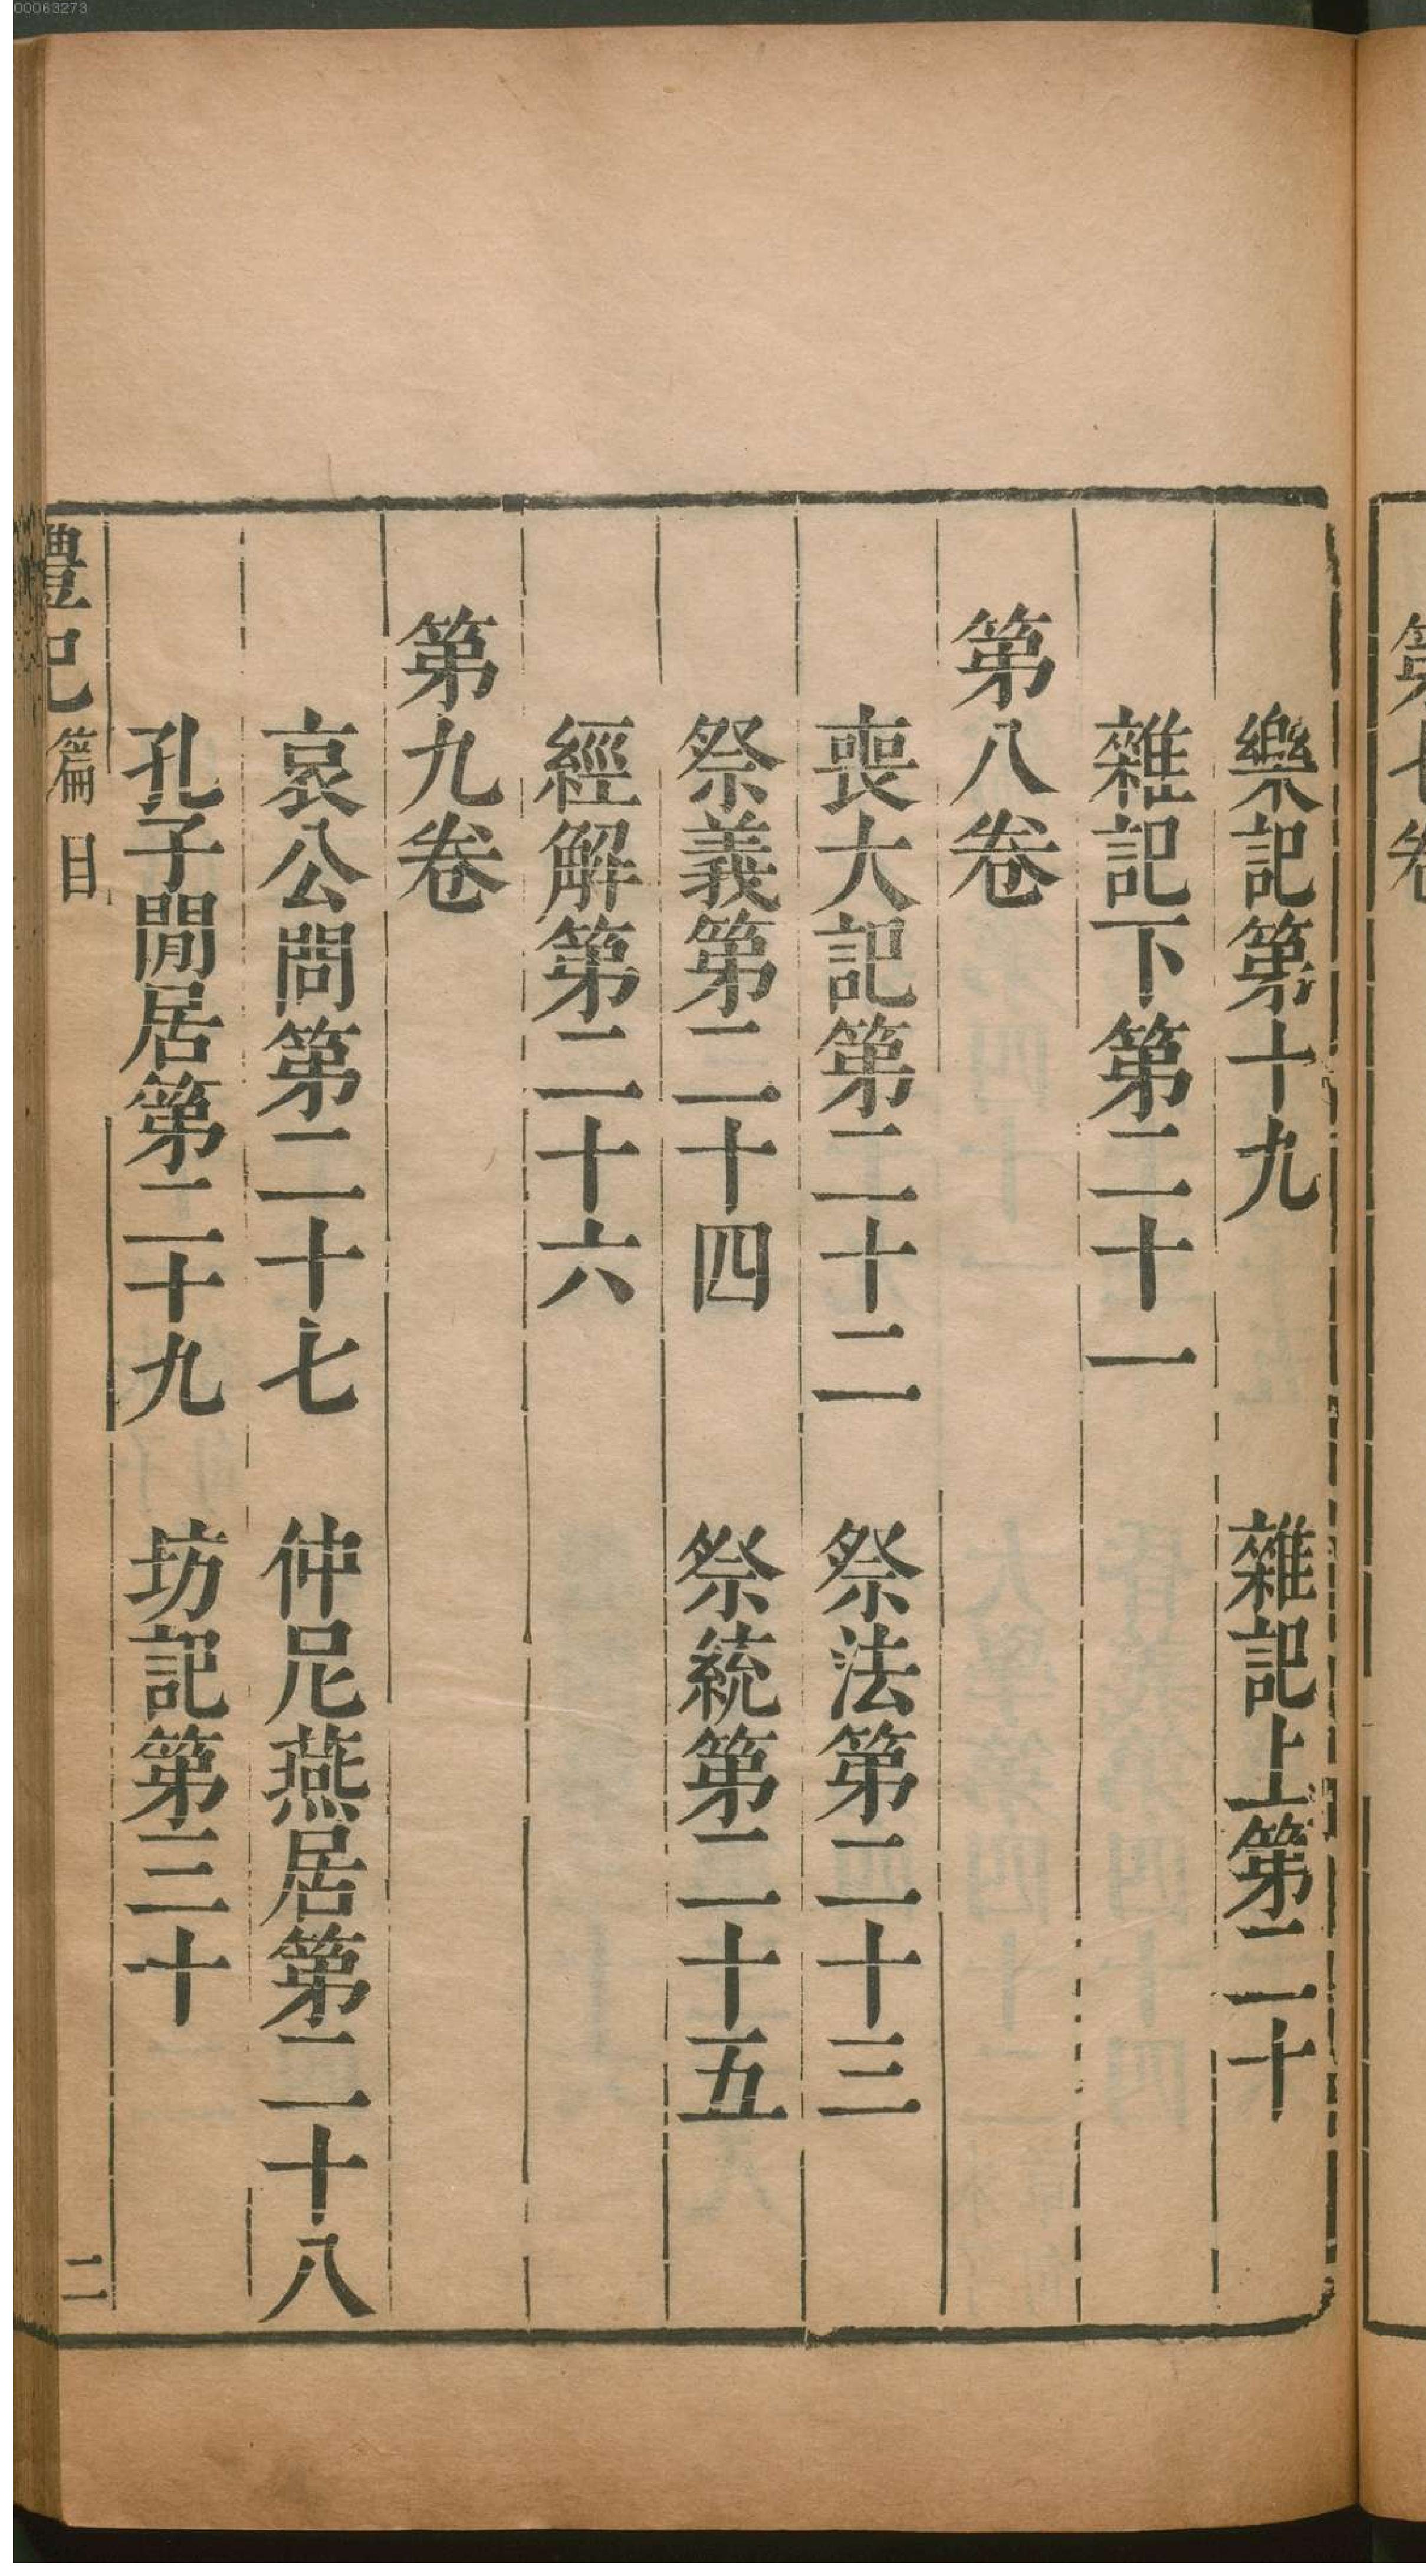 00063273
第七卷
樂記第十九　雜記上第二十
雜記下第二十一
第八卷
喪大記第二十二　祭法第二十三
祭義第二十四　祭統第二十五
經解第二十六
第九卷
哀公問第二十七　仲尼燕居第二十八
孔子閒居第二十九　坊記第三十
禮記　篇目　二